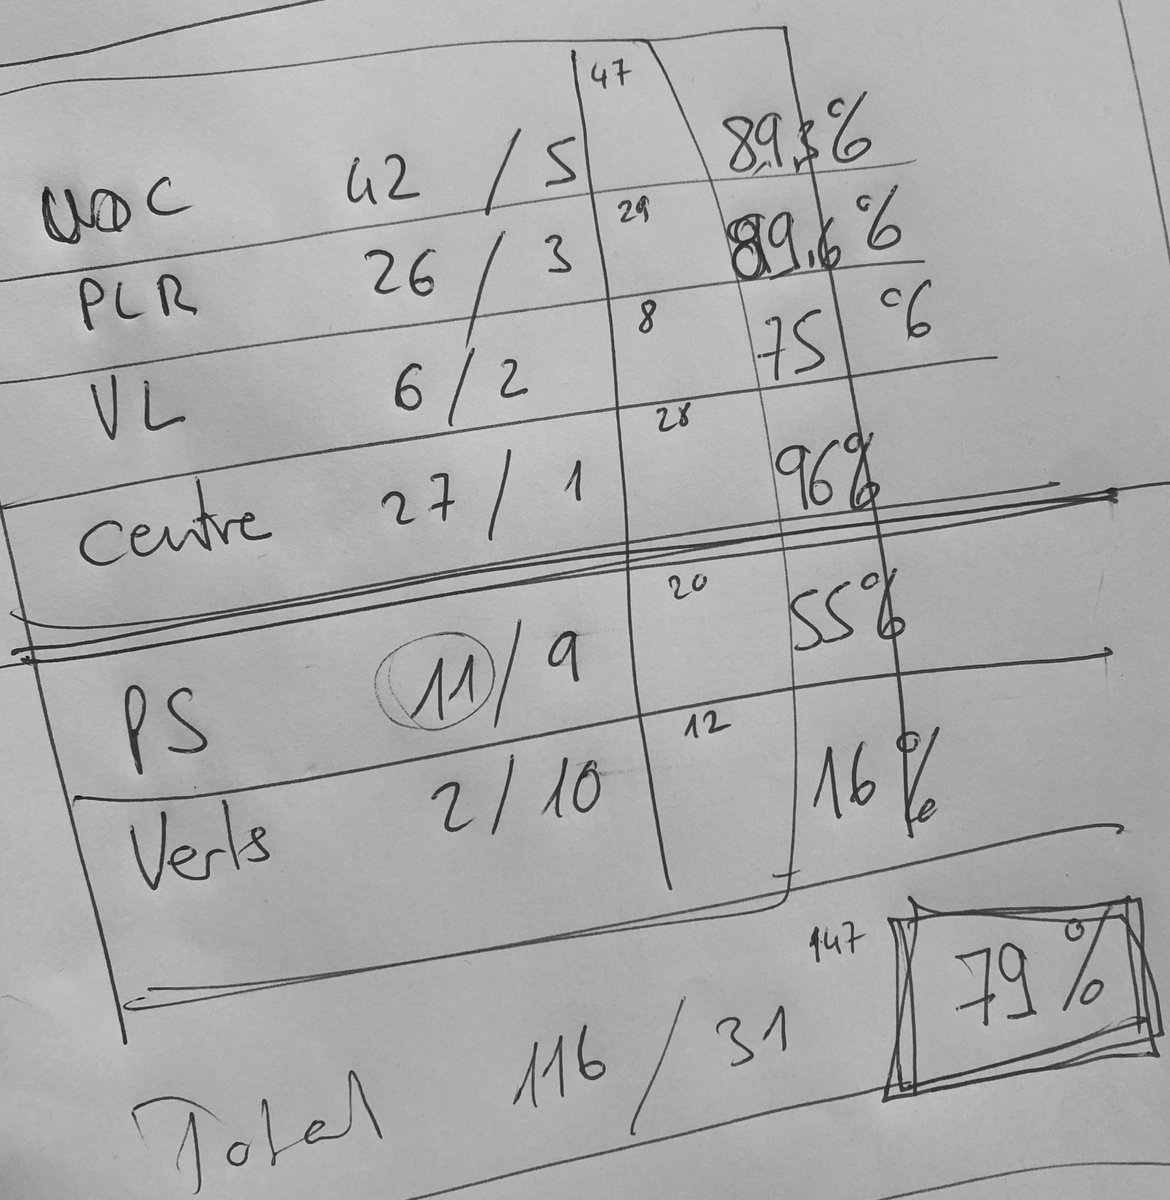 UDC 42 / 5 47 89,3%
PLR 26 / 3 29 89,6%
VL 6 / 2 8 75 %
Centre 27 / 1 28 96%
PS 11 / 9 20 55%
Verts 2 / 10 12 16%
Total 116 / 31 147 79%